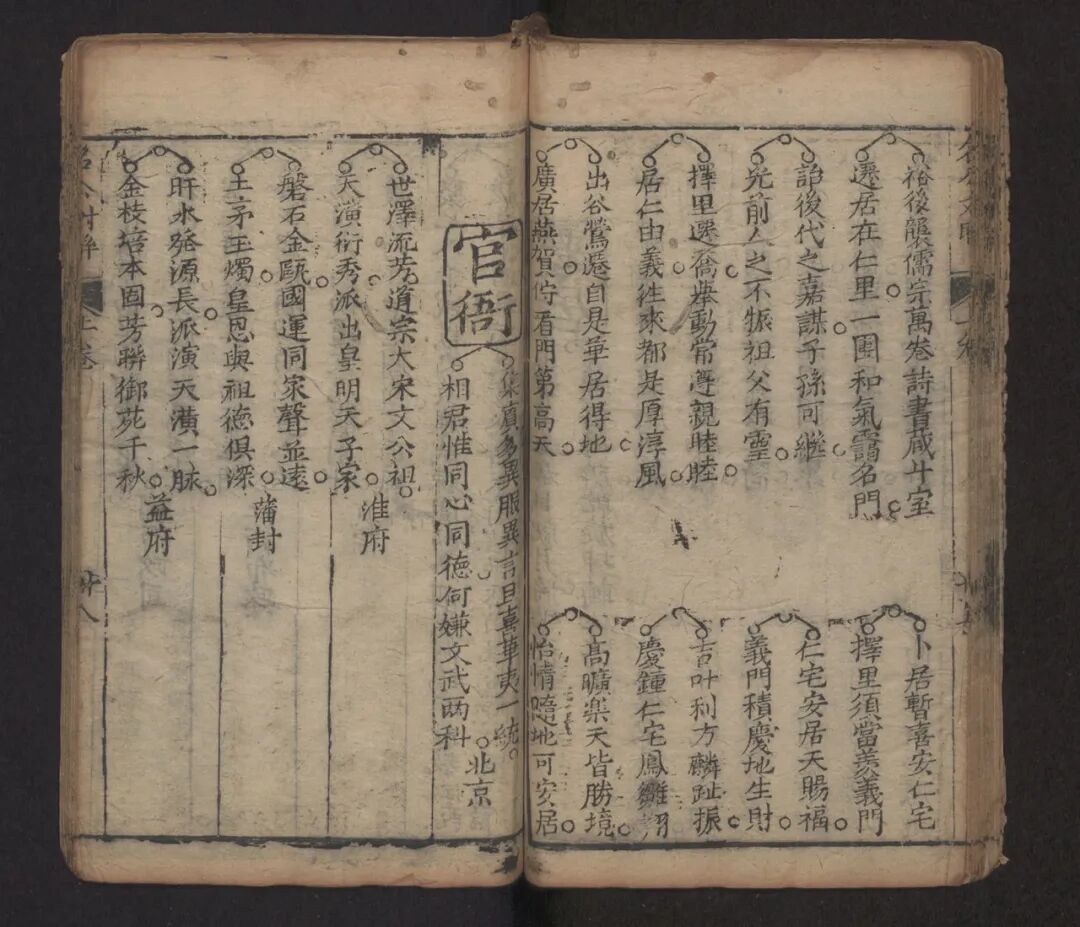 裕後襲儒宗萬卷詩書藏斗室
遷居在仁里一團和氣靄名門
詒後代之嘉謀子孫可繼
光前人之不振祖父有靈
擇里選喬舉動常遵親睦睦
居仁由義徃來都是厚淳風
出谷鶯遷自是華居得地
廣居燕賀佇看門第高天
卜居暫喜安仁宅
擇里須當羨義門
仁宅安居天賜福
義門積慶地生財
吉叶利方麟趾振
慶鍾仁宅鳳雛翔
高曠樂天皆勝境
怡情隨地可安居
官衙
真多異服異言且喜華夷一統
相君惟同心同德何嫌文武两科
北京
世澤流芳道宗大宋文公祖
天潢衍秀派出皇明天子家
淮府
磐石金甌國運同家聲並遠
土茅玉燭皇恩與祖德俱深
藩封
盱水發源長派演天潢一脉
金枝培本固芳聯御苑千秋
益府
上卷
廿八